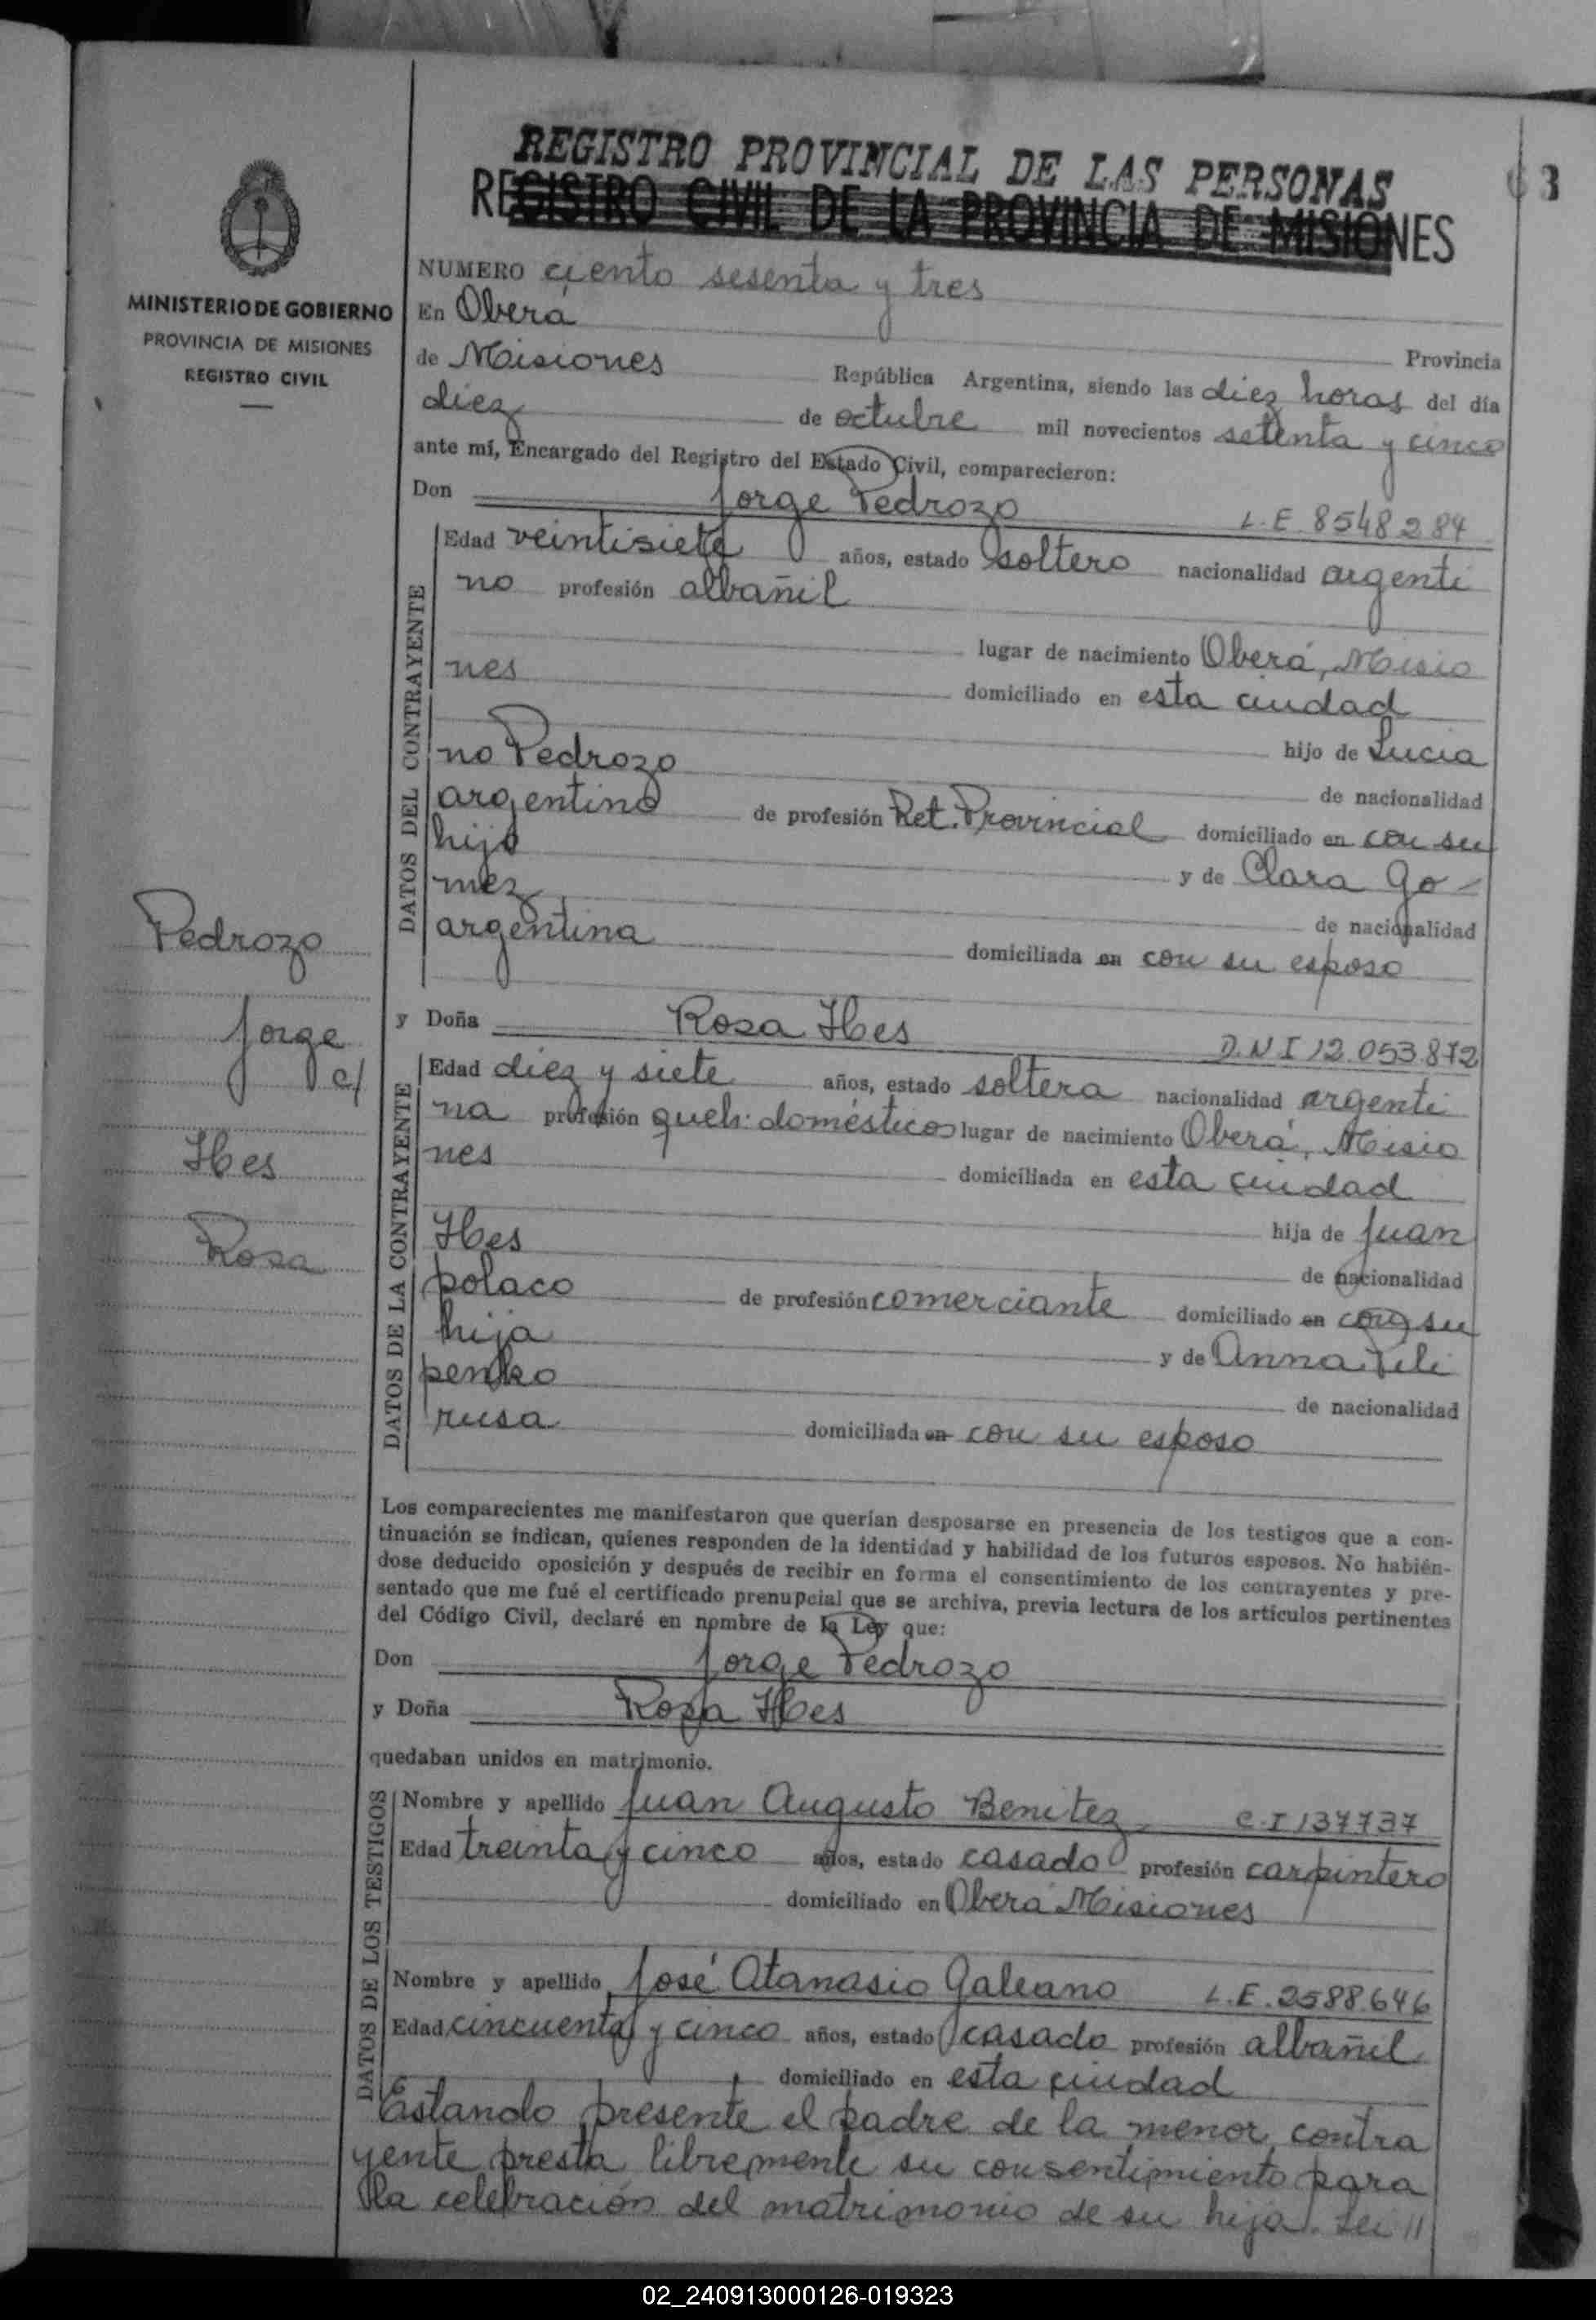 REGISTRO PROVINCIAL DE LAS PERSONAS
REGISTRO CIVIL DE LA PROVINCIA DE MISIONES
63
MINISTERIO DE GOBIERNO
PROVINCIA DE MISIONES
REGISTRO CIVIL
NUMERO ciento sesenta y tres
En Oberá Provincia
de Misiones República Argentina, siendo las diez horas del día
diez de octubre mil novecientos setenta y cinco
ante mí, Encargado del Registro del Estado Civil, comparecieron:
Don Jorge Pedrozo L.E 8548284
DATOS DEL CONTRAYENTE
Edad veintisiete años, estado soltero nacionalidad argenti
no profesión albañil
lugar de nacimiento Oberá, Misio
nes domiciliado en esta ciudad
hijo de Lucia
no Pedrozo de nacionalidad
argentino de profesión Ret. Provincial domiciliado en con su
hijo y de Clara Go-
mez de nacionalidad
argentina domiciliada en con su esposo
y Doña Rosa Hes D.N I 12.053.872
DATOS DE LA CONTRAYENTE
Edad diez y siete años, estado soltera nacionalidad argenti
na profesión queh: domésticos lugar de nacimiento Oberá, Misio
nes domiciliada en esta ciudad
hija de Juan
Hes de nacionalidad
polaco de profesión comerciante domiciliado en con su
hija y de Anna Pili
penko de nacionalidad
rusa domiciliada en con su esposo
Pedrozo
Jorge
c/
Hes
Rosa
Los comparecientes me manifestaron que querían desposarse en presencia de los testigos que a con-
tinuación se indican, quienes responden de la identidad y habilidad de los futuros esposos. No habién-
dose deducido oposición y después de recibir en forma el consentimiento de los contrayentes y pre-
sentado que me fué el certificado prenupcial que se archiva, previa lectura de los artículos pertinentes
del Código Civil, declaré en nombre de la Ley que:
Don Jorge Pedrozo
y Doña Rosa Hes
quedaban unidos en matrimonio.
DATOS DE LOS TESTIGOS
Nombre y apellido Juan Augusto Benitez C.I 137737
Edad treinta y cinco años, estado casado profesión carpintero
domiciliado en Oberá Misiones
Nombre y apellido José Atanasio Galeano L.E. 2588646
Edad cincuenta y cinco años, estado casado profesión albañil
domiciliado en esta ciudad
Estando presente el padre de la menor contra
yente presta libremente su consentimiento para
la celebración del matrimonio de su hija. Lei //
02_240913000126-019323